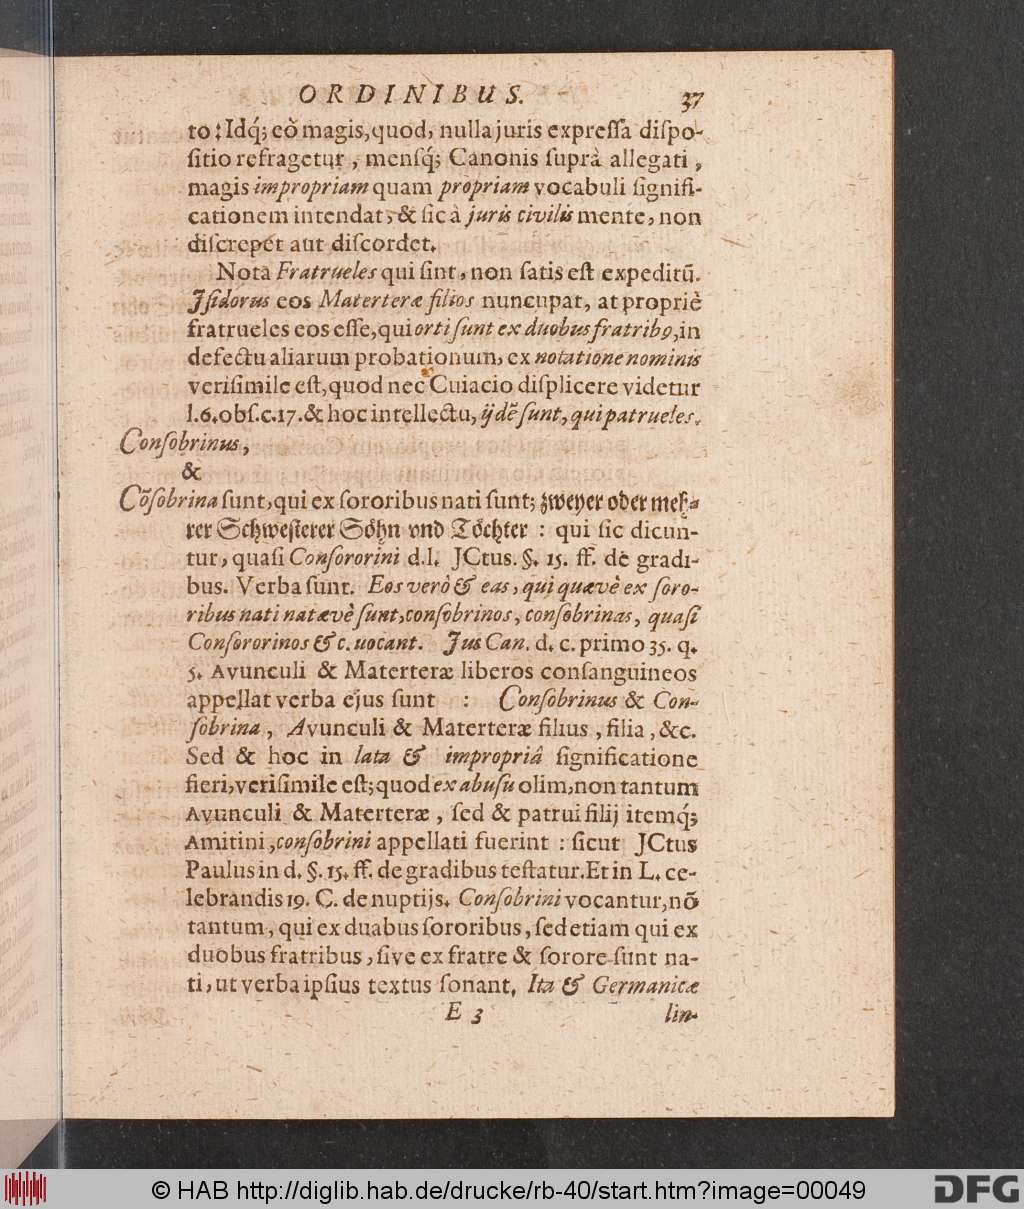 ORDINIBUS. 37
to: Idq́; eò magis, quod, nulla juris expreſſa diſpo-
ſitio refragetur, menſq́; Canonis ſuprà allegati,
magis impropriam quam propriam vocabuli ſignifi-
cationem intendat, & ſic à juris civilis mente, non
diſcrepet aut diſcordet.
Nota Fratrueles qui ſint, non ſatis eſt expeditũ.
Iſidorus eos Materteræ filios nuncupat, at propriè
fratrueles eos eſſe, qui orti ſunt ex duobus fratribꝰ, in
defectu aliarum probationum, ex notatione nominis
veriſimile eſt, quod nec Cuiacio diſplicere videtur
l. 6. obſ. c. 17. & hoc intellectu, ijdẽ ſunt, qui patrueles.
Conſobrinus,
&
Cõſobrina ſunt, qui ex ſororibus nati ſunt; zweyer oder meh-
rer Schweſterer Söhn vnd Töchter : qui ſic dicun-
tur, quaſi Conſororini d. l. JCtus. §. 15. ff. de gradi-
bus. Verba ſunt. Eos verò & eas, qui quævè ex ſoro-
ribus nati natævè ſunt, conſobrinos, conſobrinas, quaſi
Conſororinos & c. uocant. Jus Can. d. c. primo 35. q.
5. Avunculi & Materteræ liberos conſanguineos
appellat verba ejus ſunt : Conſobrinus & Con-
ſobrina, Avunculi & Materteræ filius, filia, &c.
Sed & hoc in lata & impropriâ ſignificatione
fieri, veriſimile eſt; quod ex abuſu olim, non tantum
Avunculi & Materteræ, ſed & patrui filij itemq́;
Amitini, conſobrini appellati fuerint : ſicut JCtus
Paulus in d. §. 15. ff. de gradibus teſtatur. Et in L. ce-
lebrandis 19. C. de nuptijs. Conſobrini vocantur, nõ
tantum, qui ex duabus ſororibus, ſed etiam qui ex
duobus fratribus, ſive ex fratre & ſorore ſunt na-
ti, ut verba ipſius textus ſonant. Ita & Germanicæ
E 3 lin-
© HAB http://diglib.hab.de/drucke/rb-40/start.htm?image=00049
DFG